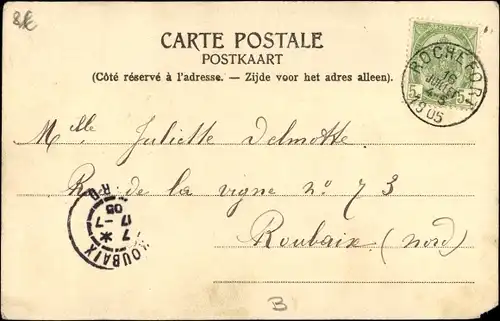 8€
CARTE POSTALE
POSTKAART
(Côté réservé à l'adresse. — Zijde voor het adres alleen).
ROCHEFORT
16
JUILLET
1905
5 5
Mlle Juliette Delmotte
R. de la vigne no 73
Roubaix (Nord)
ROUBAIX
7
17 -7
05
B